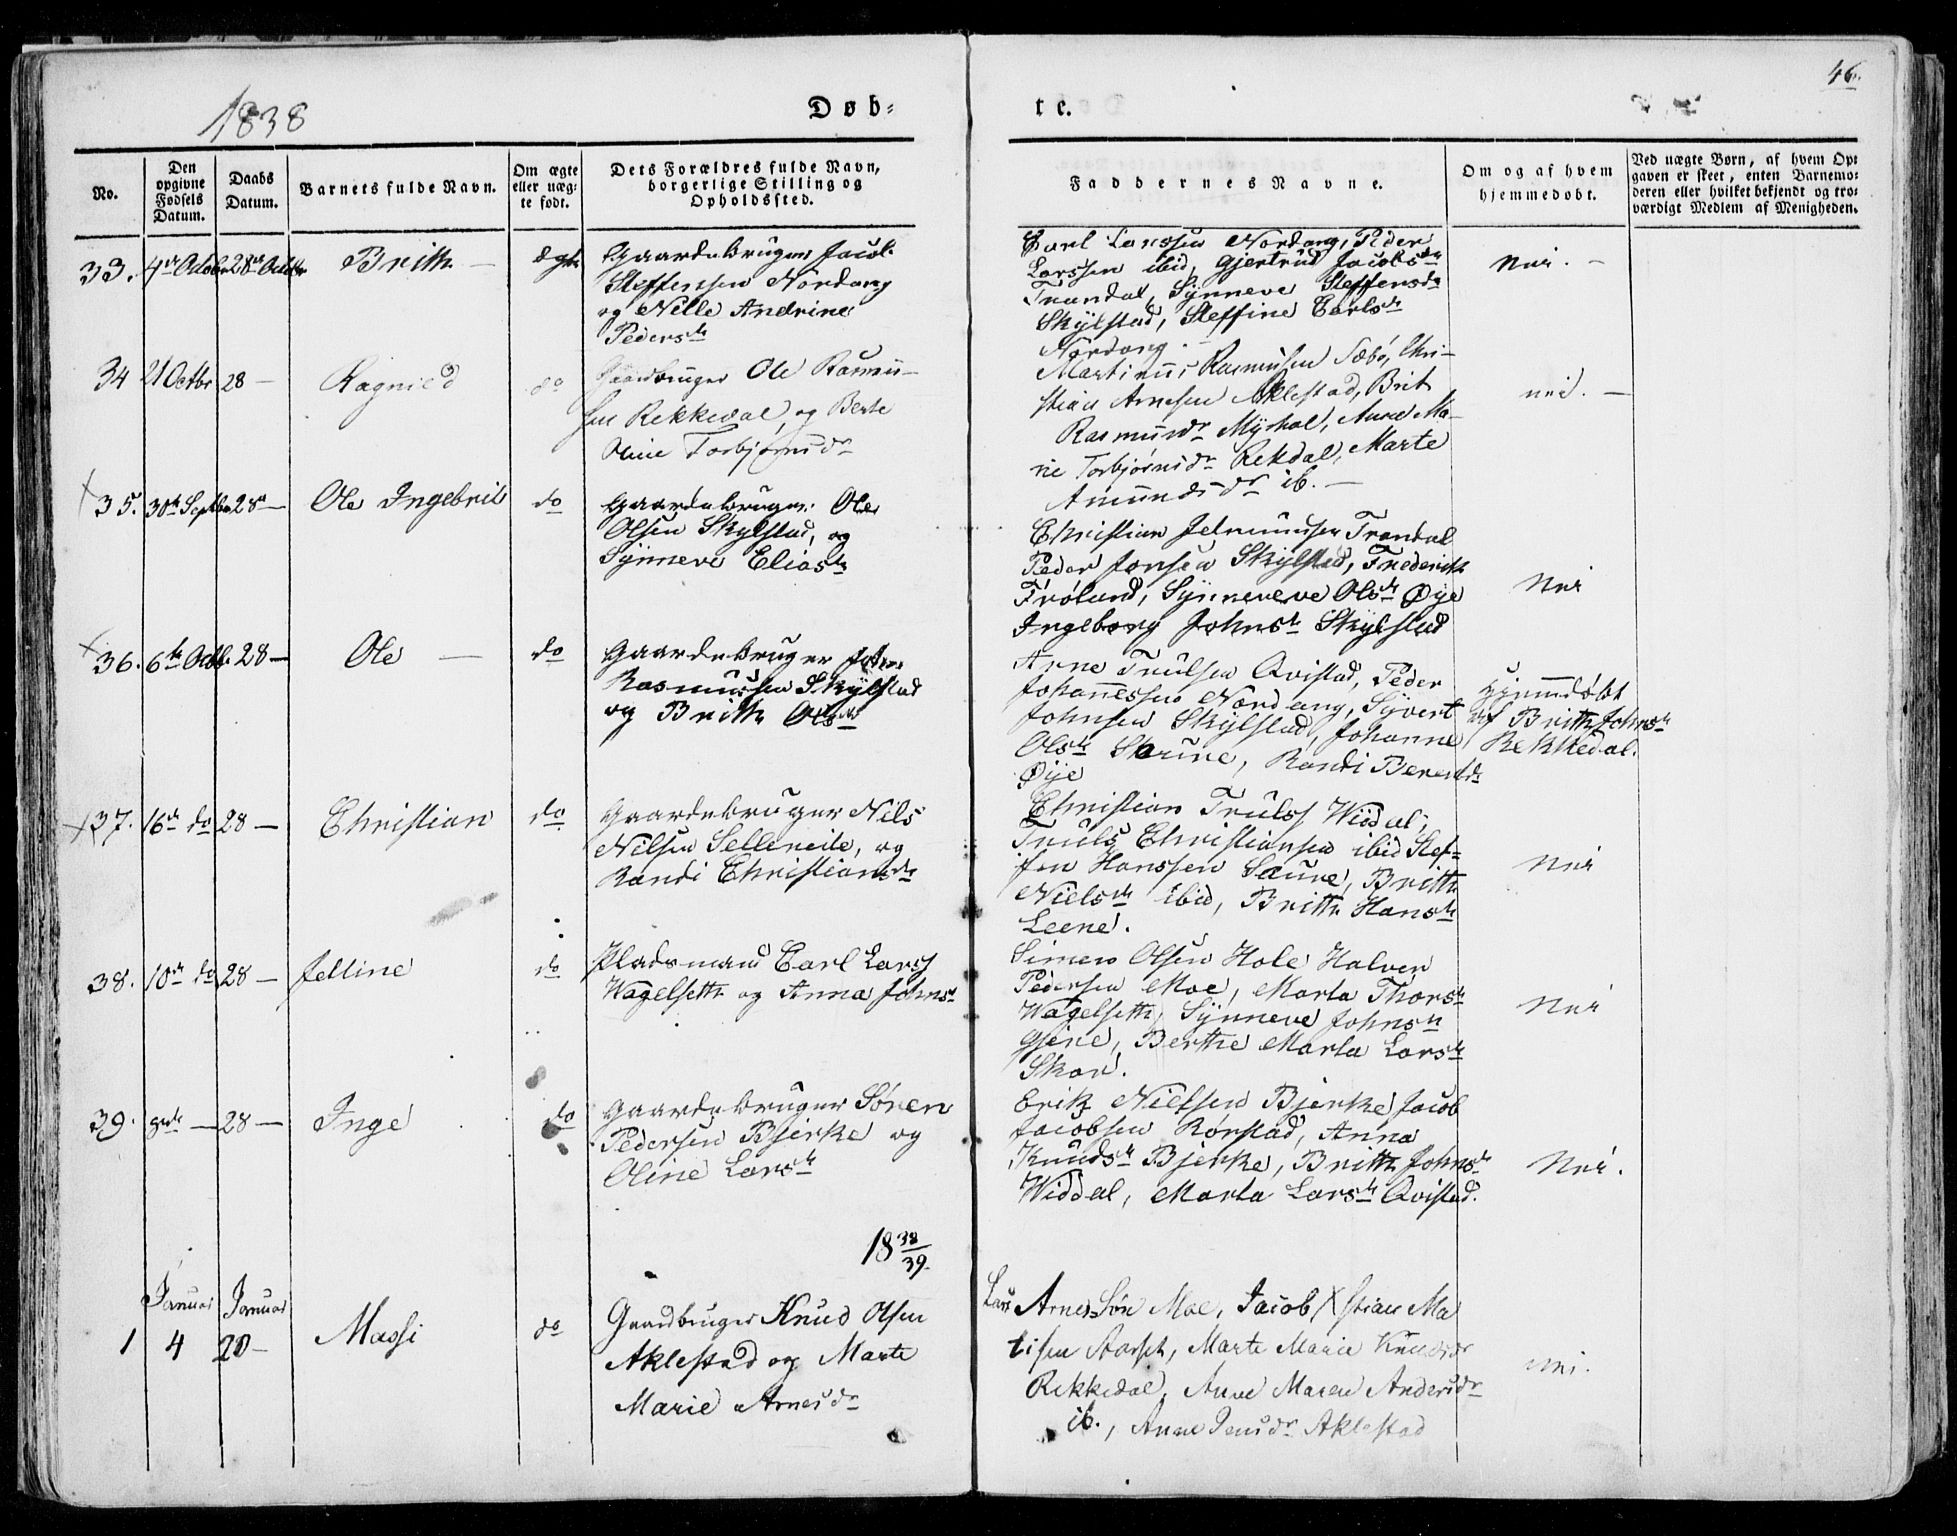 46.
1838
Døb=
te.
No.
Den opgivne Fødsels Datum.
Daabs Datum.
Barnets fulde Navn.
Om ægte eller uæg= te født.
Dets Forældres fulde Navn, borgerlige Stilling og Opholdssted.
Faddernes Navne.
Om og af hvem hjemmedøbt.
Ved uægte Børn, af hvem Op= gaven er skeet, enten Barnemo= deren eller hvilket bekjendt og tro= værdigt Medlem af Menigheden.
33. 4de Octobr 28de Octobr Brith — Ægte
Gaardebruger Jacob
Steffensen Nordang
og Nille Andrine
Pedersdr
Carl Larssen Nordang, Peder
Larssen ibid, Gjertrud Jacobsdr
Trandal, Synneve Steffensdr
Skylstad, Steffine Carlsdr
Nordang.
Nei. —
34 21 Octbr 28 — Ragnild do
Gaardbruger Ole Rasmu—
sen Rekkedal, og Berte
Oline Torbjørnsdr
Martinus Rasmusen Sæbø, Chri—
stian Arnesen Aklestad, Brit
Rasmusdr Myhol, Anne Ma—
rie Torbjørnsdr Rekdal, Marte
Amundsdr ib. —
nei. —
35. 30te Septbr 28de — Ole Ingebrit do
Gaardebruger Ole
Olsen Skylstad, og
Synneve Eliasdr
Christian Jetmundsen Trandal
Peder Jonsen Skylstad, Frederik
Frøland, Synneveve Olsdr Øye
Ingeborg Johnsdr Skylstad
Nei
36. 6te Octbr 28 — Ole — do
Gaardebruger John
Rasmussen Skylstad
og Brith Olsdr
Arne Trulsen Qvistad, Peder
Johannessen Nordang, Syvert
Johnsen Skylstad, Johanne
Olsdr Skrune, Randi Berentdr
Øye
Hjemmedøbt
af Brith Johnsdr
Rekkedal.
37. 16de do 28 — Christian do
Gaardebruger Nils
Nilsen Selleneite, og
Randi Christiansdr
Christian Truls Widdal,
Truls Christiansen ibid Stef=
fen Hanssen Saure, Brith
Nielsdr ibid, Brith Hansdr
Leene.
Nei
38. 10de do 28 — Jelline do
Pladsmand Carl Lars
Wagelseth og Anna Johnsdr
Simen Olsen Hole Halver
Pedersen Moe, Marta Thorsdr
Wagelseth, Synneve Johnsdr
Gjere, Berthe Marta Larsdr
Skar.
Nei
39. — 28 — Inge do
Gaardebruger Søren
Pedersen Bjerke og
Oline Larsdr
Erik Nielsen Bjerke Jacob
Jacobsen Rørstad, Anna
Knudsdr Bjerke, Brith Johnsdr
Widdal, Marta Larsdr Qvistad.
Nei.
18 38/39.
Januar Januar
1 4 20 — Massi do
Gaardbruger Knud Olsen
Aklestad og Marte
Marie Arnesdr
Lars Arnes Søn Moe, Jacob Xstian Ma
tisen Aarset, Marte Marie Knudsdr
Rekkedal, Anne Maren Andersdr
ib., Anne Jensdr Aklestad
nei.